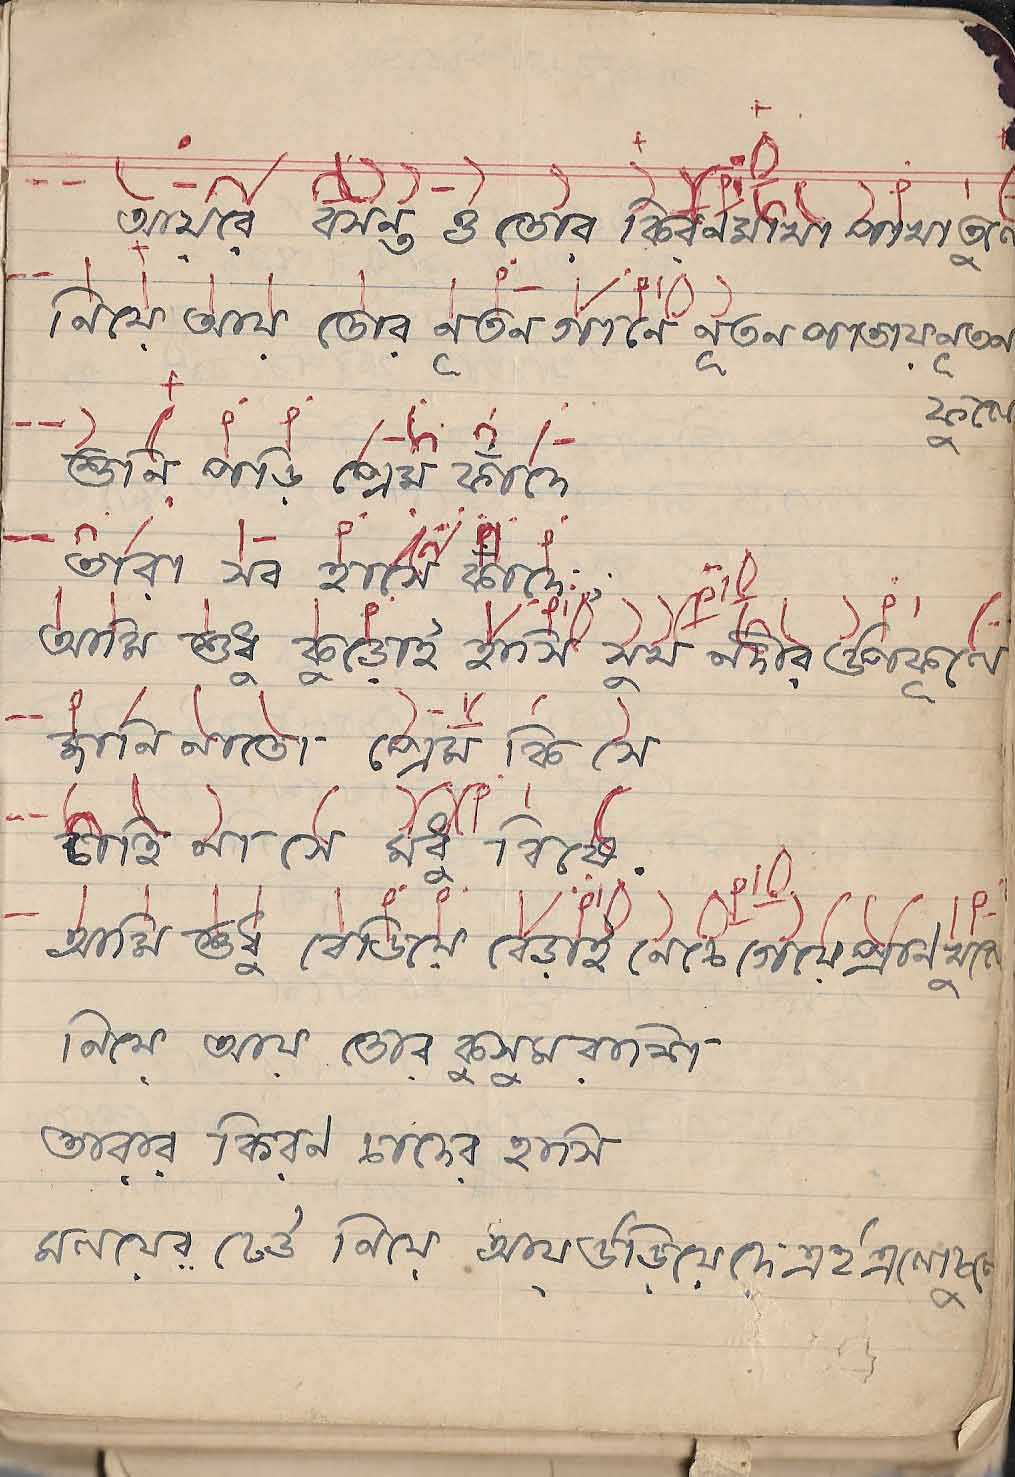 আয়রে বসন্ত ও তোর কিরণমাখা পাখা তুলে
নিয়ে আয় তোর নূতন গানে নূতন পাতায় নূতন
ফুলে
শুনি পড়ি প্রেম ফাঁদে
তারা সব হাসে কাঁদে
আমি শুধু কুড়োই হাসি সুখ নদীর উপকূলে
জানি নাতো প্রেম কি সে
চাহি না সে মধু বিষে
আমি শুধু বেড়িয়ে বেড়াই নেচে গেয়ে প্রাণ খুলে
নিয়ে আয় তোর কুসুম রাশি
তারার কিরণ চাঁদের হাসি
মলয়ের ঢেউ নিয়ে আয় উড়িয়ে দে এই এলোচুলে